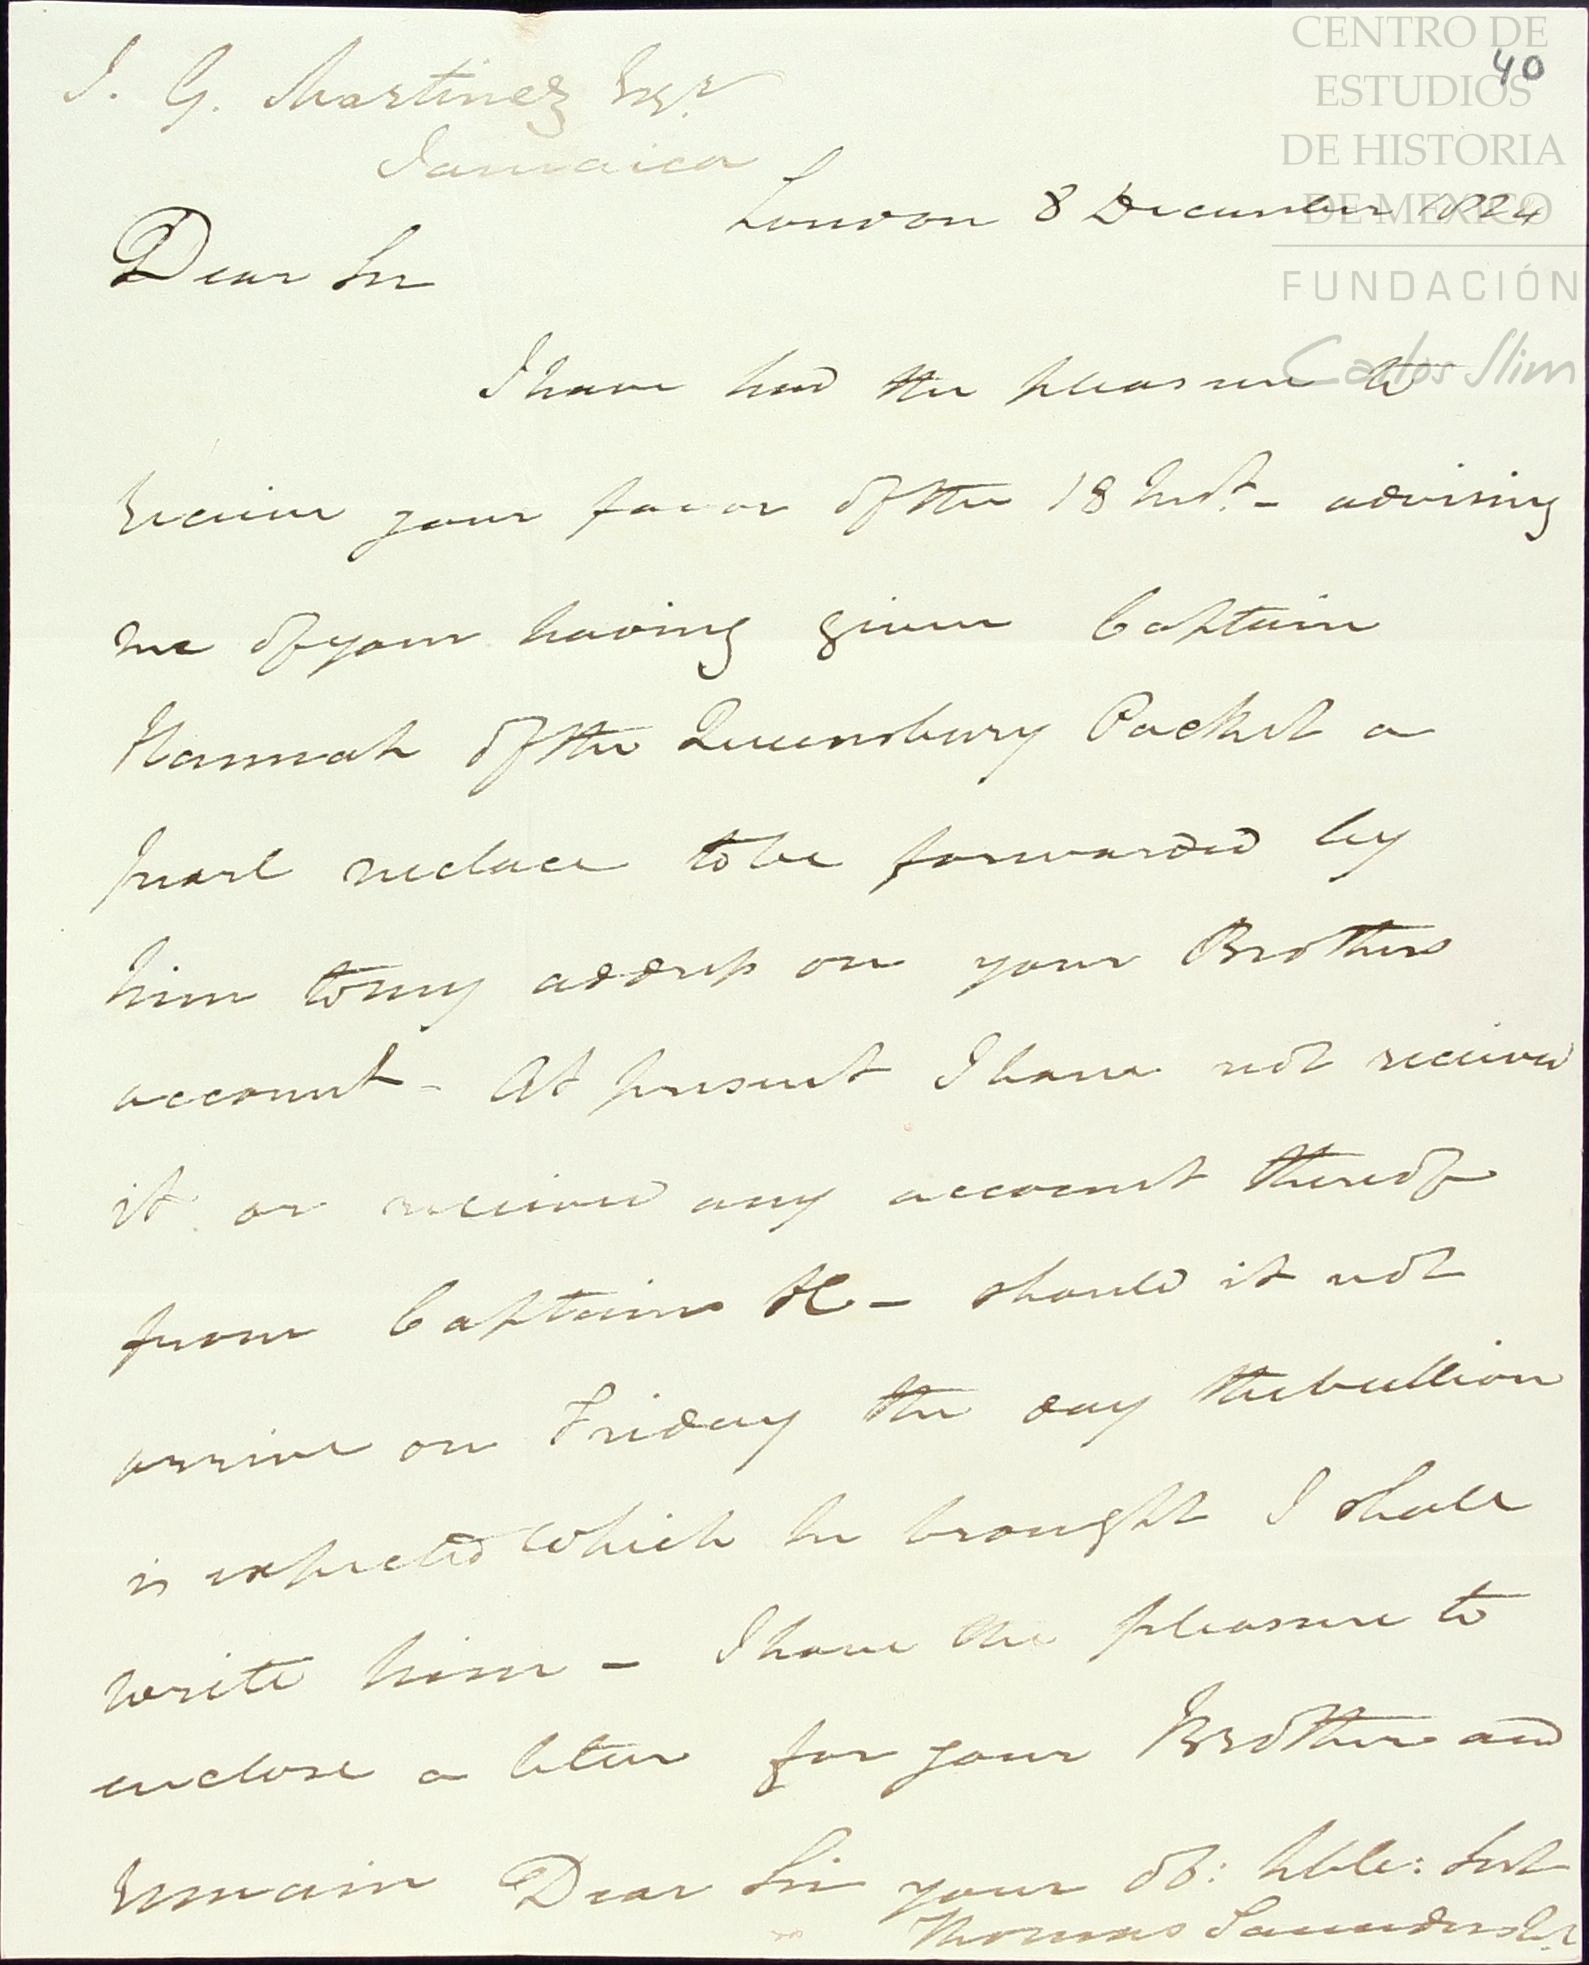 CENTRO DE
ESTUDIOS
DE HISTORIA
DE MEXICO
FUNDACIÓN
Carlos Slim
40
J. G. Martinez Esqr.
Jamaica
London 8 December 1824
Dear Sir
I have had the pleasure to
receive your favor of the 18 Inst. - advising
me of your having given Captain
Hannah of the Queensbury Packet a
pearl neclace to be forwarded by
him to my address on your Brothers
account - At present I have not received
it or received any account thereof
from Captain H - should it not
arrive on Friday the day the bullion
is expected which he brought I shall
write him - I have the pleasure to
enclose a letter for your Brother and
remain Dear Sir your ob: hble: Svt
Thomas Saunders